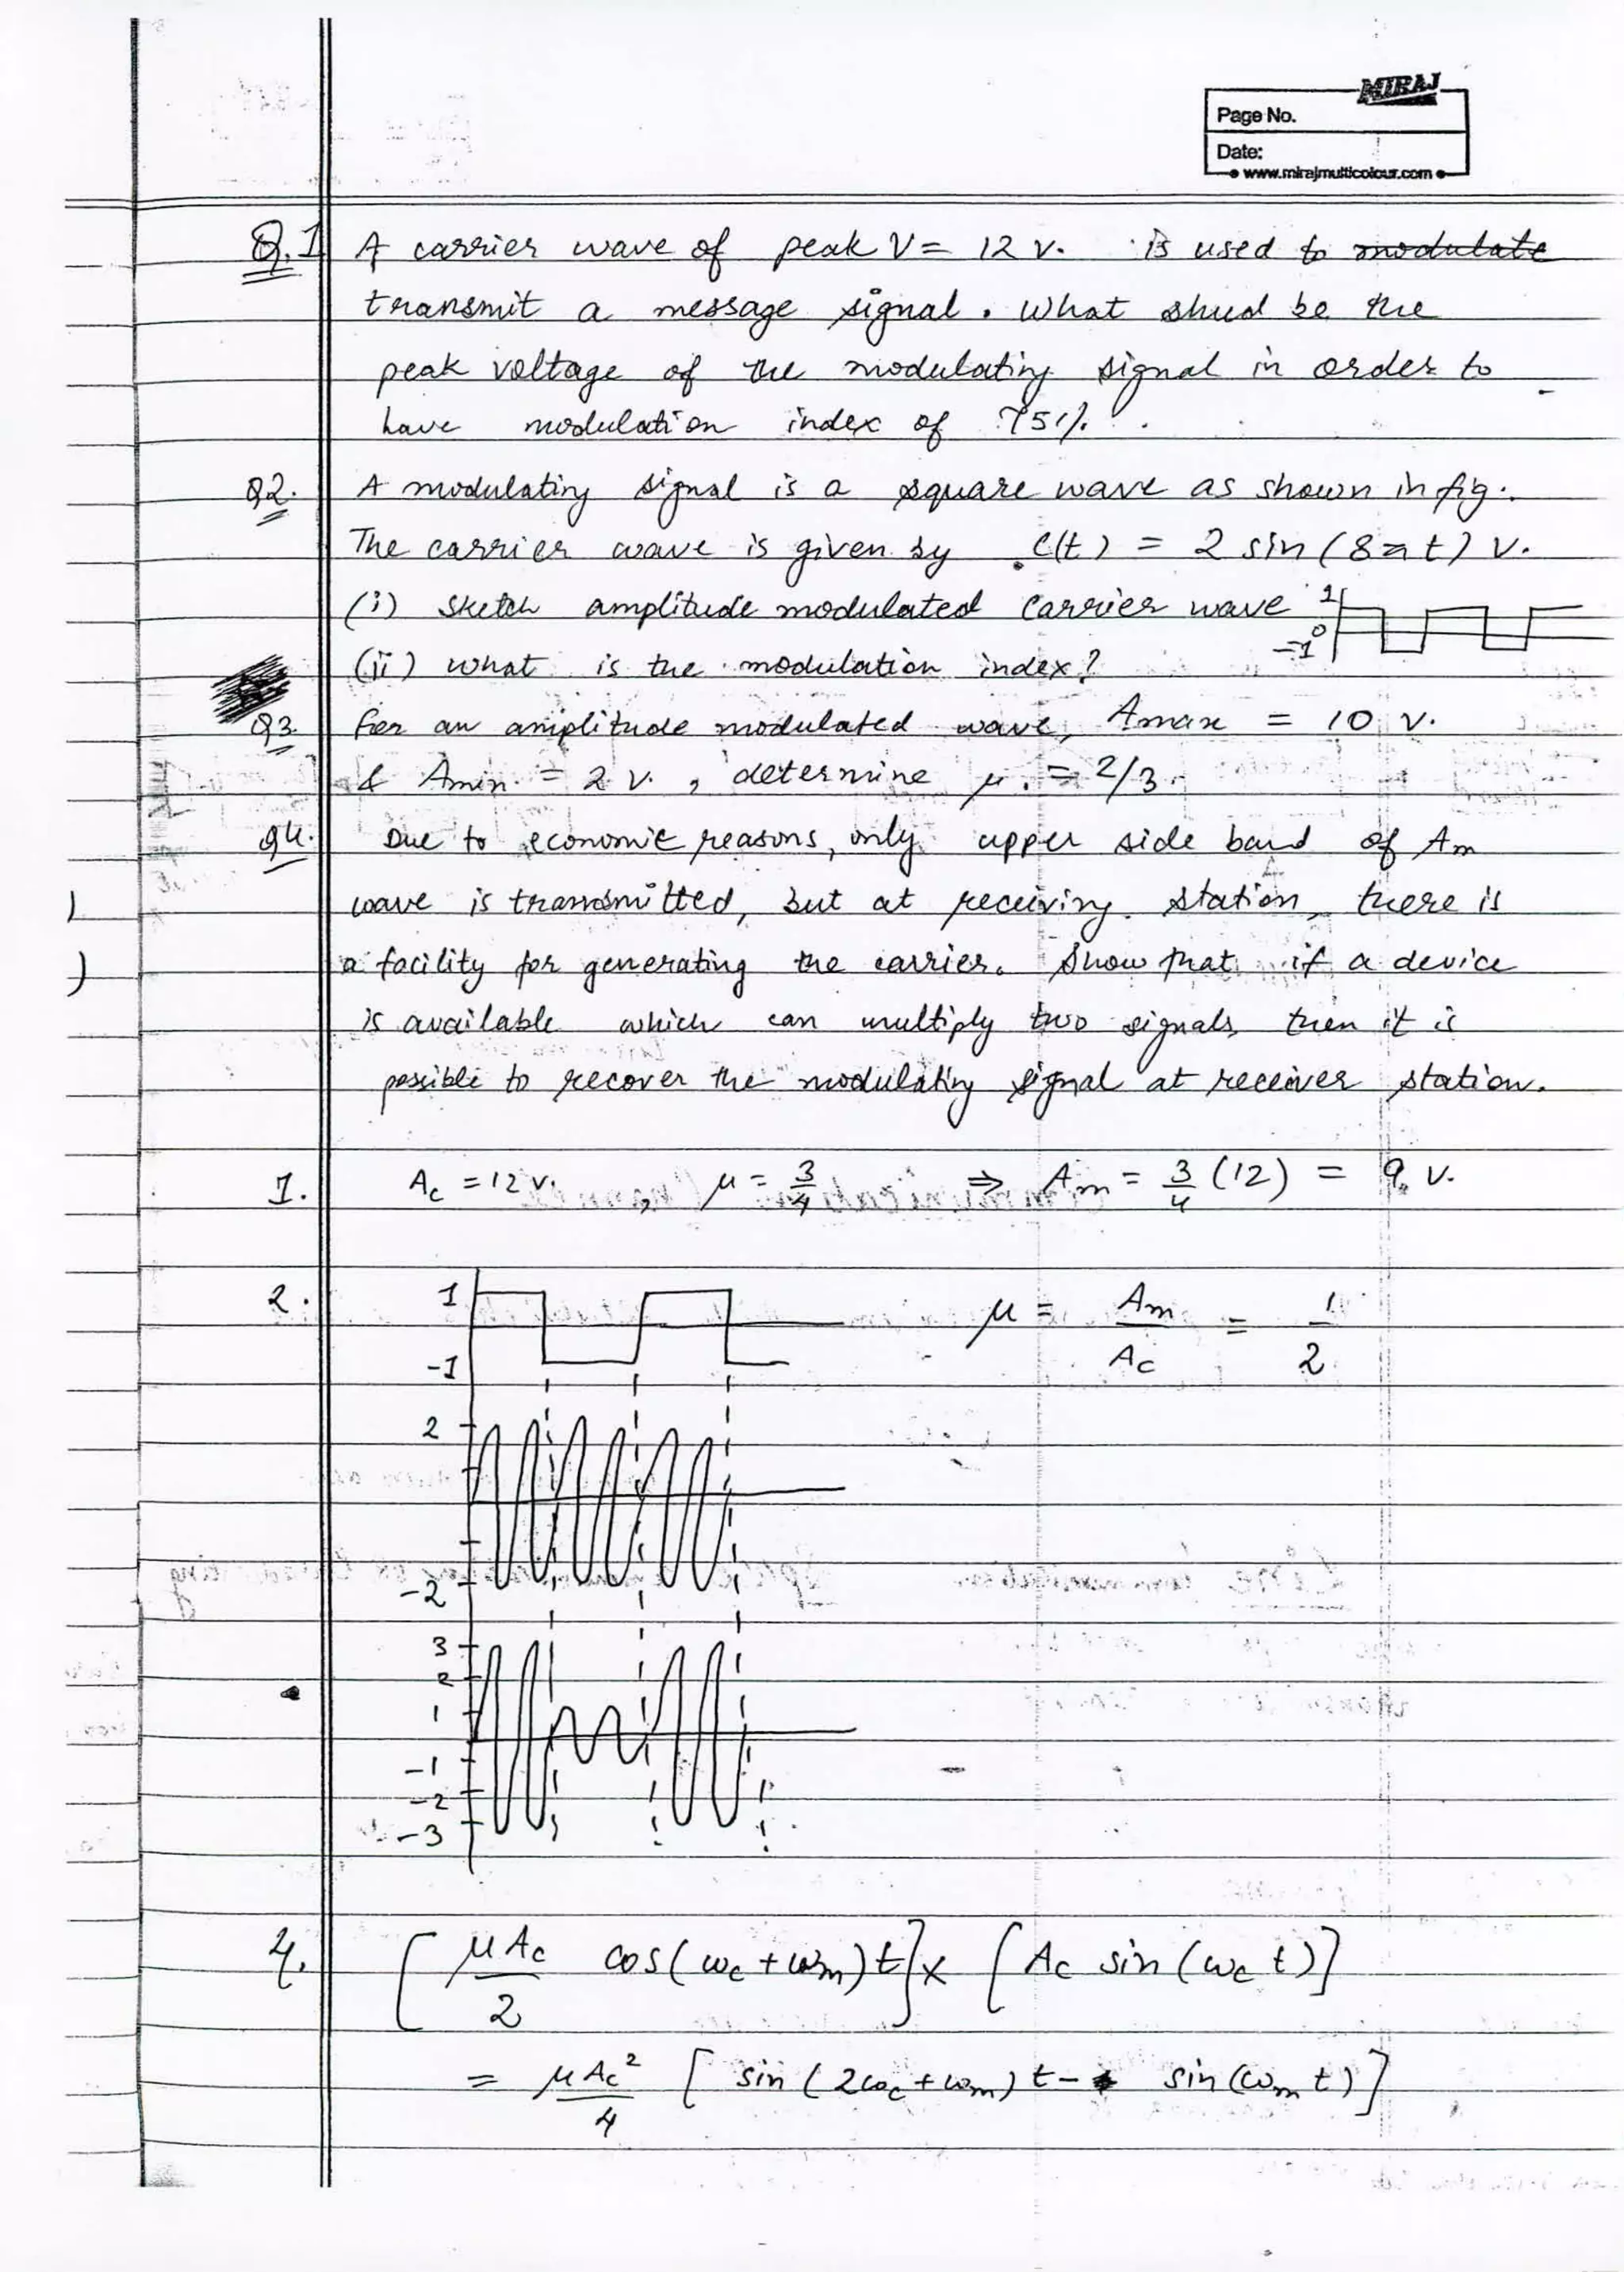 MIRAJ
Page No.
Date:
www.mirajmulticolour.com
Q.1 A carrier wave of peak V = 12 v. is used to modulate
transmit a message signal. What shud be the
peak voltage of the modulating signal in order to
have modulation index of 75%.
Q2. A modulating signal is a square wave as shown in fig.
The carrier wave is given by c(t) = 2 sin(8πt) V.
(i) Sketch amplitude modulated carrier wave 1 0 -1
(ii) what is the modulation index?
Q3. For an amplitude modulated wave, Amax = 10 V.
& Amin = 2 v., determine μ. = 2/3.
Q4. Due to economic reasons, only upper side band of Am
wave is transmitted, but at receiving station, there is
a facility for generating the carrier. Show that if a device
is available which can multiply two signals then it is
possible to recover the modulating signal at receiver station.
1. Ac = 12 v., μ = 3/4 ⇒ Am = 3/4 (12) = 9 v.
2. 1 -1 μ = Am/Ac = 1/2
2
-2
3
2
1
-1
-2
-3
4. [μAc/2 cos(ωc+ωm)t] x [Ac sin(ωc t)]
= μAc²/4 [sin(2ωc+ωm)t - sin(ωm t)]